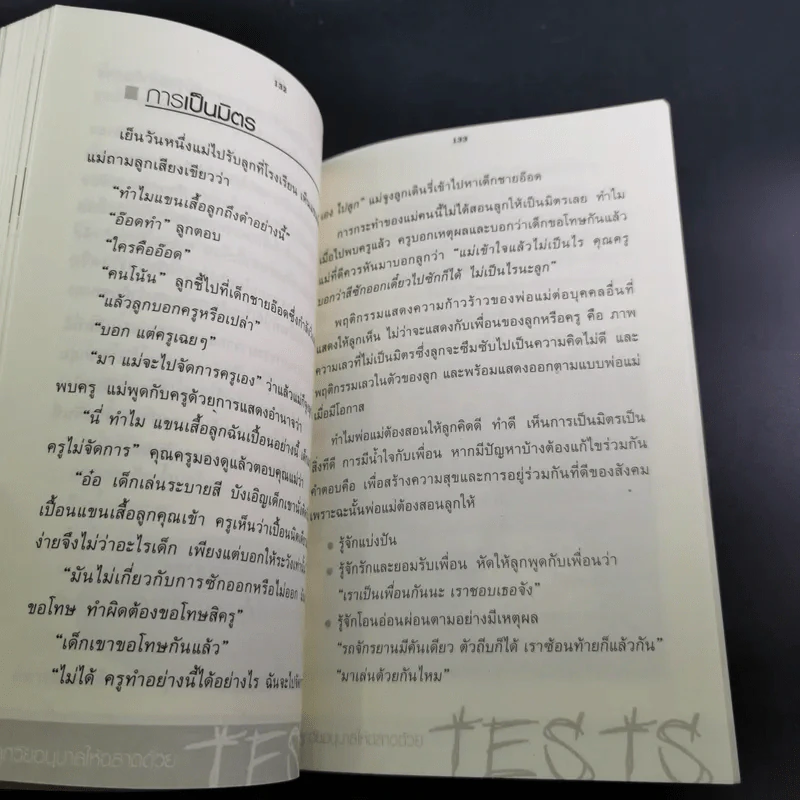 132
การเป็นมิตร
เย็นวันหนึ่งแม่ไปรับลูกที่โรงเรียน
แม่ถามลูกเสียงเขียวว่า
“ทำไมแขนเสื้อลูกถึงดำอย่างนี้”
“อ๊อดทำ” ลูกตอบ
“ใครคืออ๊อด”
“คนโน้น” ลูกชี้ไปที่เด็กชายอ๊อดซึ่งกำลัง
“แล้วลูกบอกครูหรือเปล่า”
“บอก แต่ครูเฉยๆ”
“มา แม่จะไปจัดการครูเอง” ว่าแล้วแม่ก็
พบครู แม่พูดกับครูด้วยการแสดงอำนาจว่า
“นี่ ทำไม แขนเสื้อลูกฉันเปื้อนอย่างนี้
ครูไม่จัดการ” คุณครูมองดูแล้วตอบคุณแม่ว่า
“อ๋อ เด็กเล่นระบายสี บังเอิญเด็กเขานั่ง
เปื้อนแขนเสื้อลูกคุณเข้า ครูเห็นว่าเปื้อนนิดเดียว
ง่ายจึงไม่ว่าอะไรเด็ก เพียงแต่บอกให้ระวังเท่านั้น
“มันไม่เกี่ยวกับการซักออกหรือไม่ออก
ขอโทษ ทำผิดต้องขอโทษสิครู”
“เด็กเขาขอโทษกันแล้ว”
“ไม่ได้ ครูทำอย่างนี้ได้อย่างไร ฉันจะไป
ลูกวัยอนุบาลให้ฉลาดด้วย TESTS
133
เอง ไปลูก” แม่จูงลูกเดินรี่เข้าไปหาเด็กชายอ๊อด
การกระทำของแม่คนนี้ไม่ได้สอนลูกให้เป็นมิตรเลย ทำไม
เมื่อไปพบครูแล้ว ครูบอกเหตุผลและบอกว่าเด็กขอโทษกันแล้ว
แม่ที่ดีควรหันมาบอกลูกว่า “แม่เข้าใจแล้วไม่เป็นไร คุณครู
บอกว่าสีซักออกเดี๋ยวไปซักก็ได้ ไม่เป็นไรนะลูก”
พฤติกรรมแสดงความก้าวร้าวของพ่อแม่ต่อบุคคลอื่นที่
แสดงให้ลูกเห็น ไม่ว่าจะแสดงกับเพื่อนของลูกหรือครู คือ ภาพ
ความเลวที่ไม่เป็นมิตรซึ่งลูกจะซึมซับไปเป็นความคิดไม่ดี และ
พฤติกรรมเลวในตัวของลูก และพร้อมแสดงออกตามแบบพ่อแม่
เมื่อมีโอกาส
ทำไมพ่อแม่ต้องสอนให้ลูกคิดดี ทำดี เห็นการเป็นมิตรเป็น
สิ่งที่ดี การมีน้ำใจกับเพื่อน หากมีปัญหาบ้างต้องแก้ไขร่วมกัน
คำตอบคือ เพื่อสร้างความสุขและการอยู่ร่วมกันที่ดีของสังคม
เพราะฉะนั้นพ่อแม่ต้องสอนลูกให้
● รู้จักแบ่งปัน
● รู้จักรักและยอมรับเพื่อน หัดให้ลูกพูดกับเพื่อนว่า
“เราเป็นเพื่อนกันนะ เราชอบเธอจัง”
● รู้จักโอนอ่อนผ่อนตามอย่างมีเหตุผล
“รถจักรยานมีคันเดียว ตัวถีบก็ได้ เราซ้อนท้ายก็แล้วกัน”
“มาเล่นด้วยกันไหม”
ลูกวัยอนุบาลให้ฉลาดด้วย TESTS